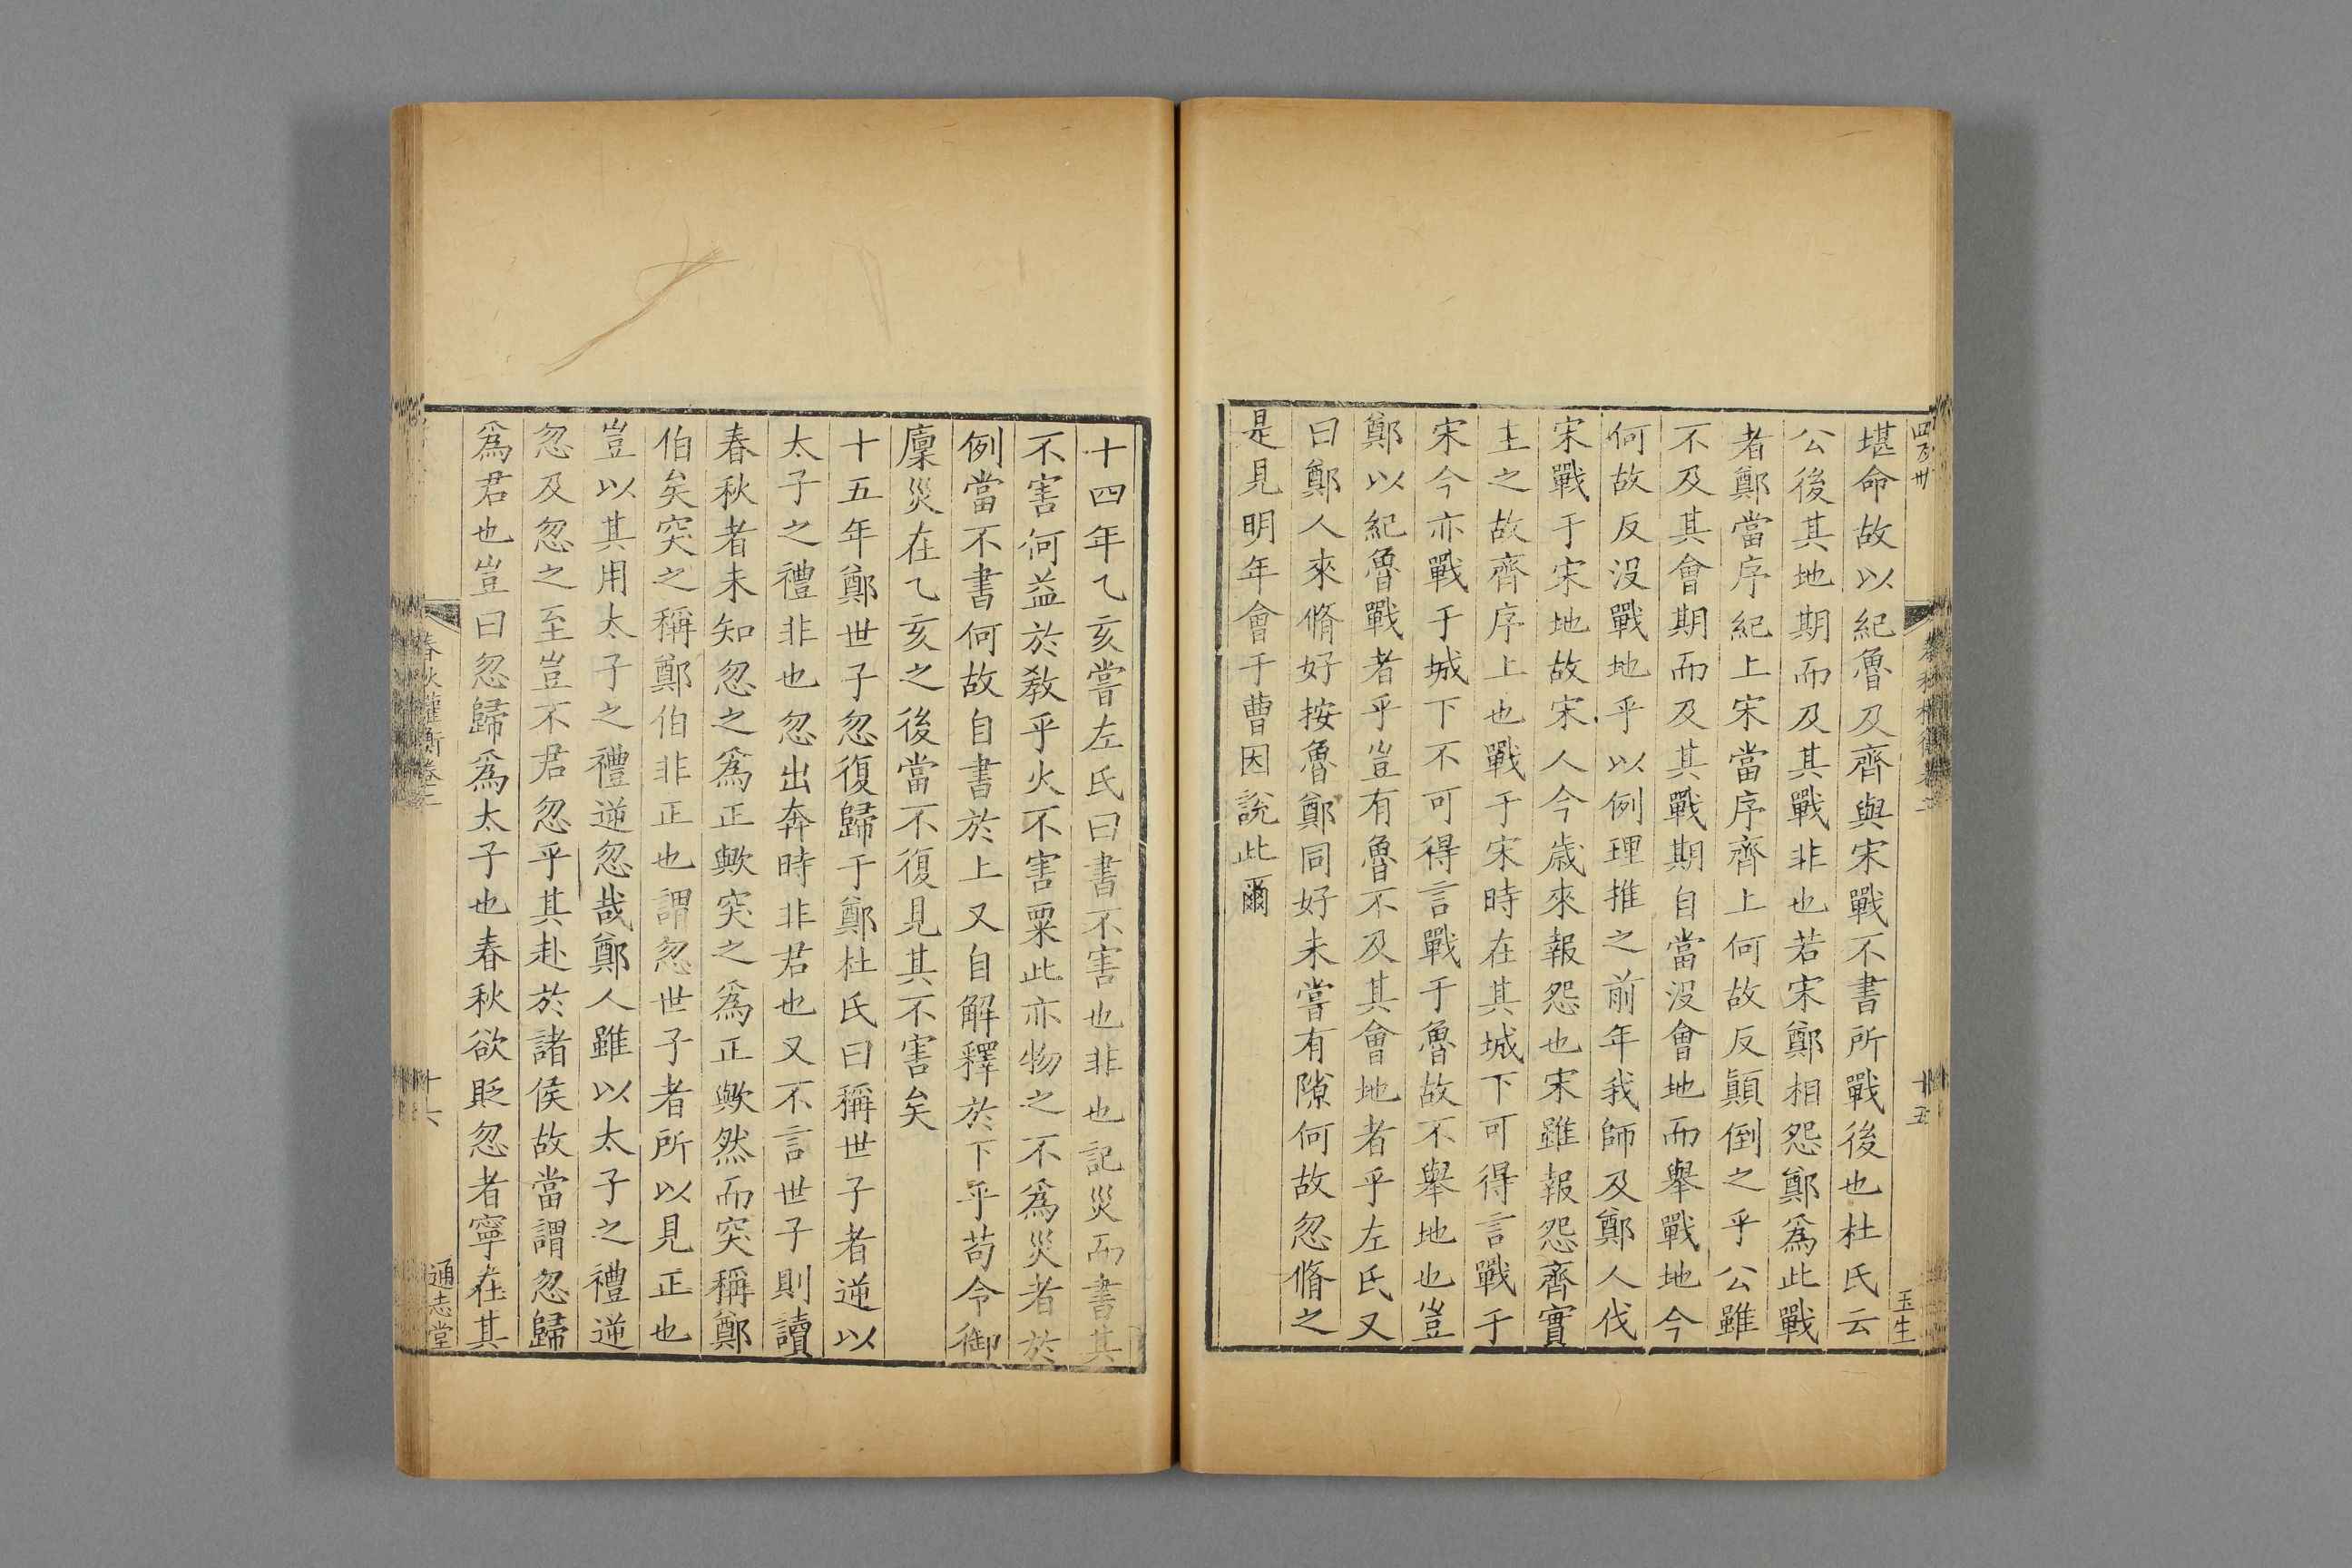 堪命故以紀魯及齊與宋戰不書所戰後也杜氏云
公後其地期而及其戰非也若宋鄭相怨鄭爲此戰
者鄭當序紀上宋當序齊上何故反顚倒之乎公雖
不及其會期而及其戰期自當沒會地而舉戰地今
何故反沒戰地乎以例理推之前年我師及鄭人伐
宋戰于宋地故宋人今歲來報怨也宋雖報怨齊實
主之故齊序上也戰于宋時在其城下可得言戰于
宋今亦戰于城下不可得言戰于魯故不舉地也豈
鄭以紀魯戰者乎豈有魯不及其會地者乎左氏又
曰鄭人來脩好按魯鄭同好未嘗有隙何故忽脩之
是見明年會于曹因說此爾
十四年乙亥嘗左氏曰書不害也非也記災而書其
不害何益於敎乎火不害粟此亦物之不爲災者於
例當不書何故自書於上又自解釋於下乎苟令御
廩災在乙亥之後當不復見其不害矣
十五年鄭世子忽復歸于鄭杜氏曰稱世子者逆以
太子之禮非也忽出奔時非君也又不言世子則讀
春秋者未知忽之爲正歟突之爲正歟然而突稱鄭
伯矣突之稱鄭伯非正也謂忽世子者所以見正也
豈以其用太子之禮逆忽哉鄭人雖以太子之禮逆
忽及忽之至豈不君忽乎其赴於諸侯故當謂忽歸
爲君也豈曰忽歸爲太子也春秋欲貶忽者寧在其
春秋權衡卷二
十六
通志堂
四百卅
十五
玉生